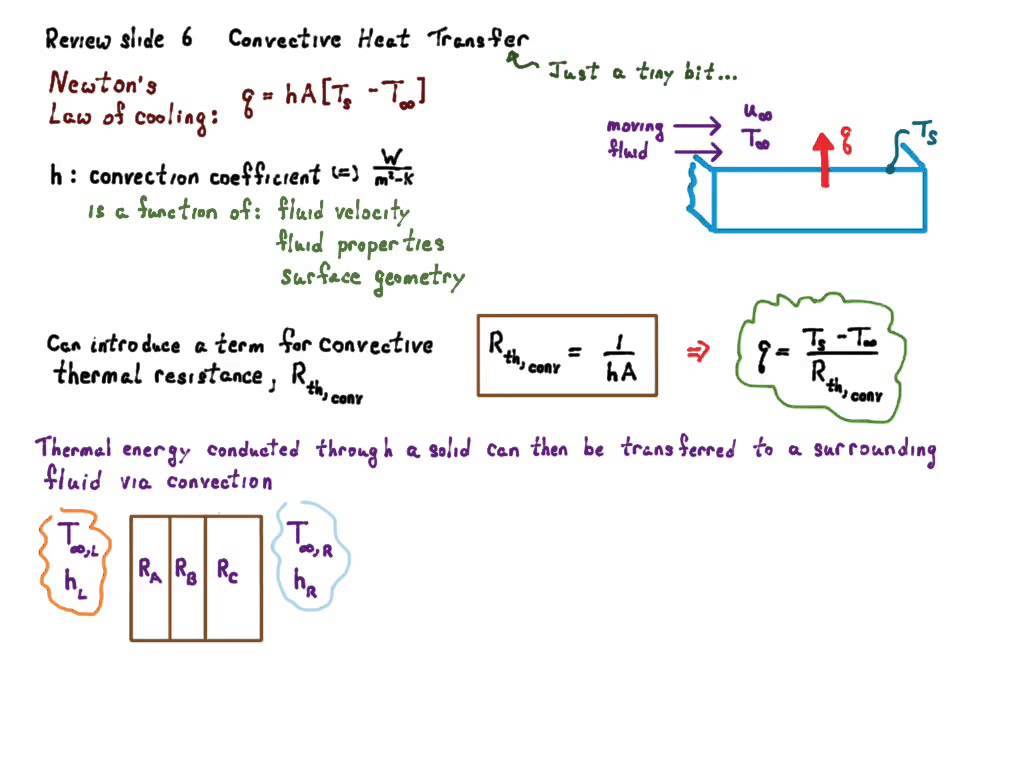 Review slide 6 Convective Heat Transfer
Just a tiny bit...
Newton's
Law of cooling: q = hA[Ts - T∞]
moving
fluid
u∞
T∞
q
Ts
h: convection coefficient (=) W/m²-K
is a function of: fluid velocity
fluid properties
surface geometry
Can introduce a term for convective
thermal resistance, Rth,conv
Rth,conv = 1/hA ⇒ q = Ts - T∞/Rth,conv
Thermal energy conducted through a solid can then be transferred to a surrounding
fluid via convection
T∞,L
hL
RA RB RC
T∞,R
hR